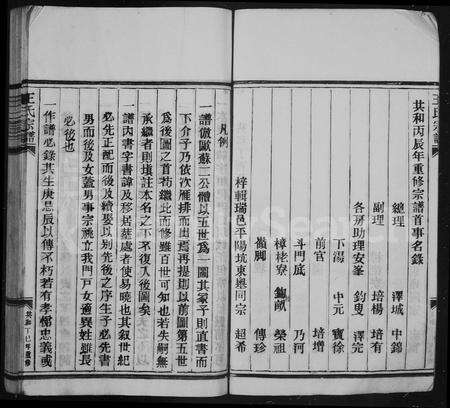 共和丙辰年重修宗譜首事名錄
總理 澤城 中錦
副理 培楊 培有
各房助理安峯 鈞叟 澤完
下湯 中元 寳徐
前官 培增
斗門底 乃河
樟栳寮 鈎畝 榮祖
嶺脚 傳珍
梓輯瑞邑平陽坑東墺同宗 超希
凡例
一譜倣歐蘇二公體以五世為一圖其冢子則直書而
下介子乃依次雁排而出焉再提則以前圖第五世
為後圖之首苟繼此而百世可知也若失嗣無
承繼者則填註本名之下不復入後圖矣
一譜內書字書諱及移居葬處者使易曉也其叙世紀
必先正配而後及續娶以别先後之序子必先書
男而後及女蓋男事宗祧立我門戶女適異姓雖長
必後也
一作譜必錄其生庚忌辰以傳不朽若有孝悌忠義或
王氏宗譜
共和丁巳年重修
王氏宗譜